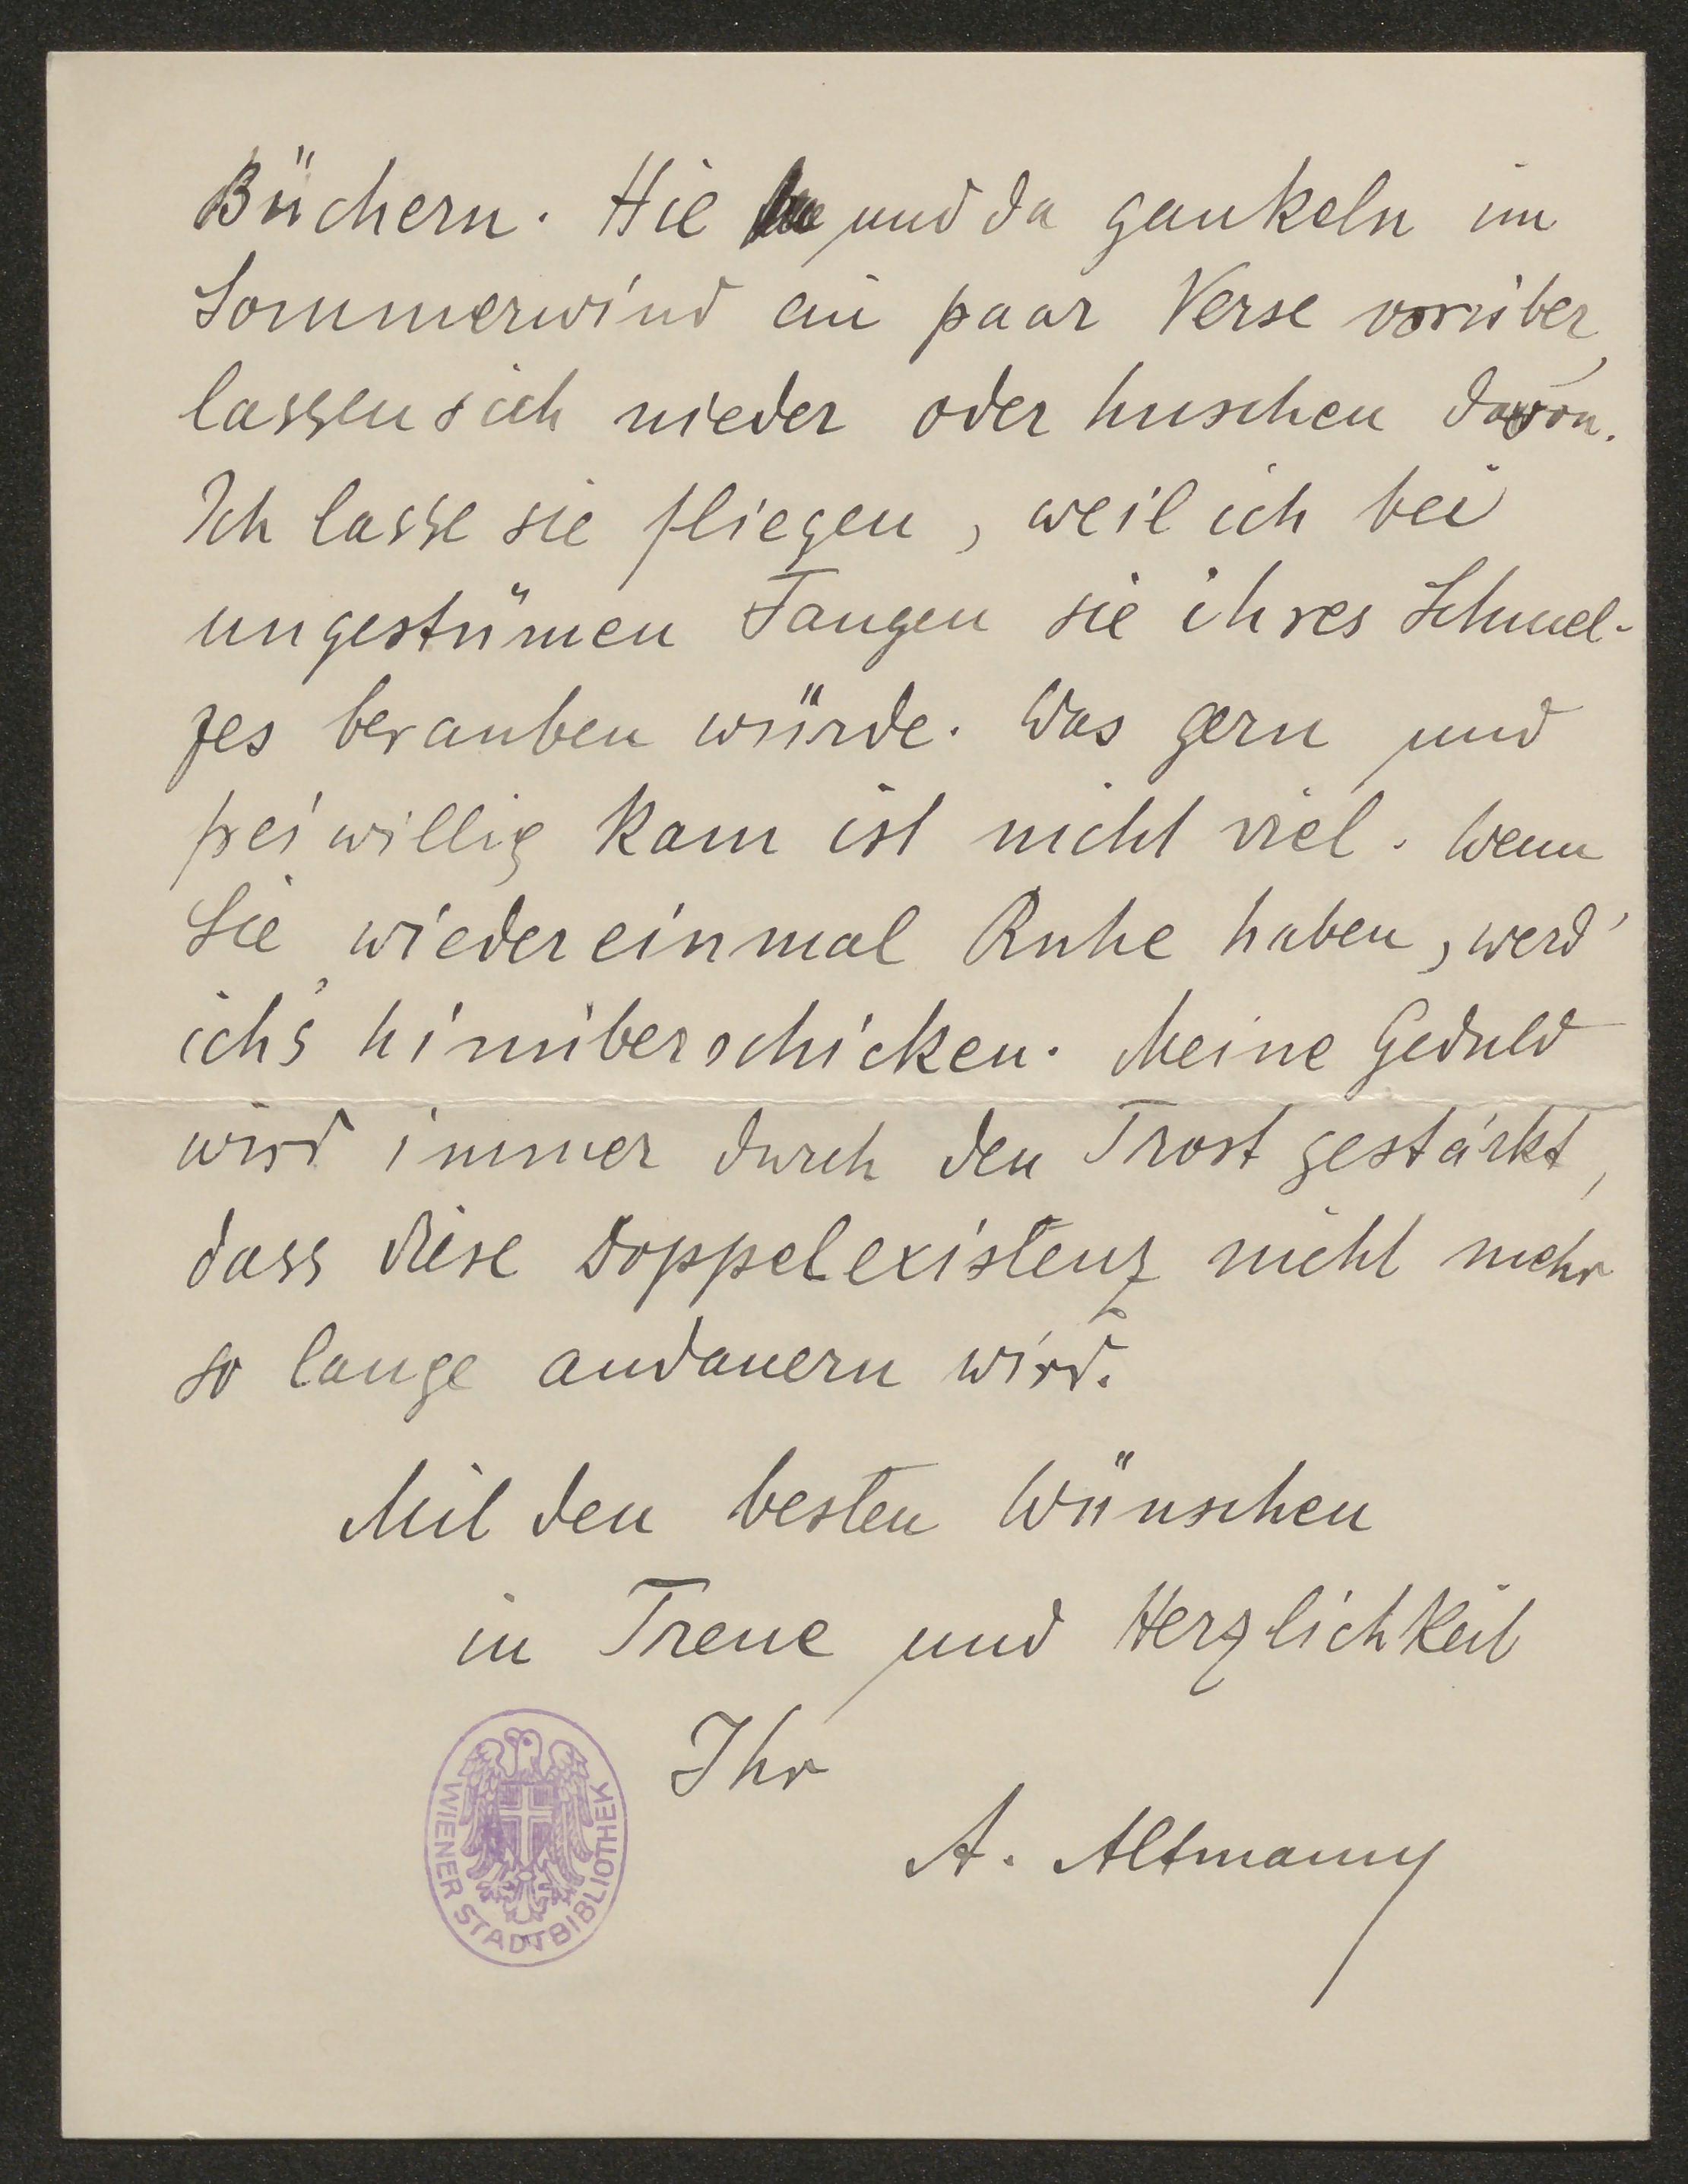 Büchern. Hie und da gaukeln im
Sommerwind ein paar Verse vorüber,
lassen sich nieder oder huschen davon.
Ich lasse sie fliegen, weil ich bei
ungestümen Fangen sie ihres Schmel-
zes berauben würde. Was gern und
freiwillig kam ist nicht viel. Wenn
Sie wiedereinmal Ruhe haben, werd'
ich's hinüberschicken. Meine Geduld
wird immer durch den Trost gestärkt,
dass diese Doppelexistenz nicht mehr
so lange andauern wird.
Mit den besten Wünschen
in Treue und Herzlichkeit
Ihr
A. Altmann
WIENER STADTBIBLIOTHEK